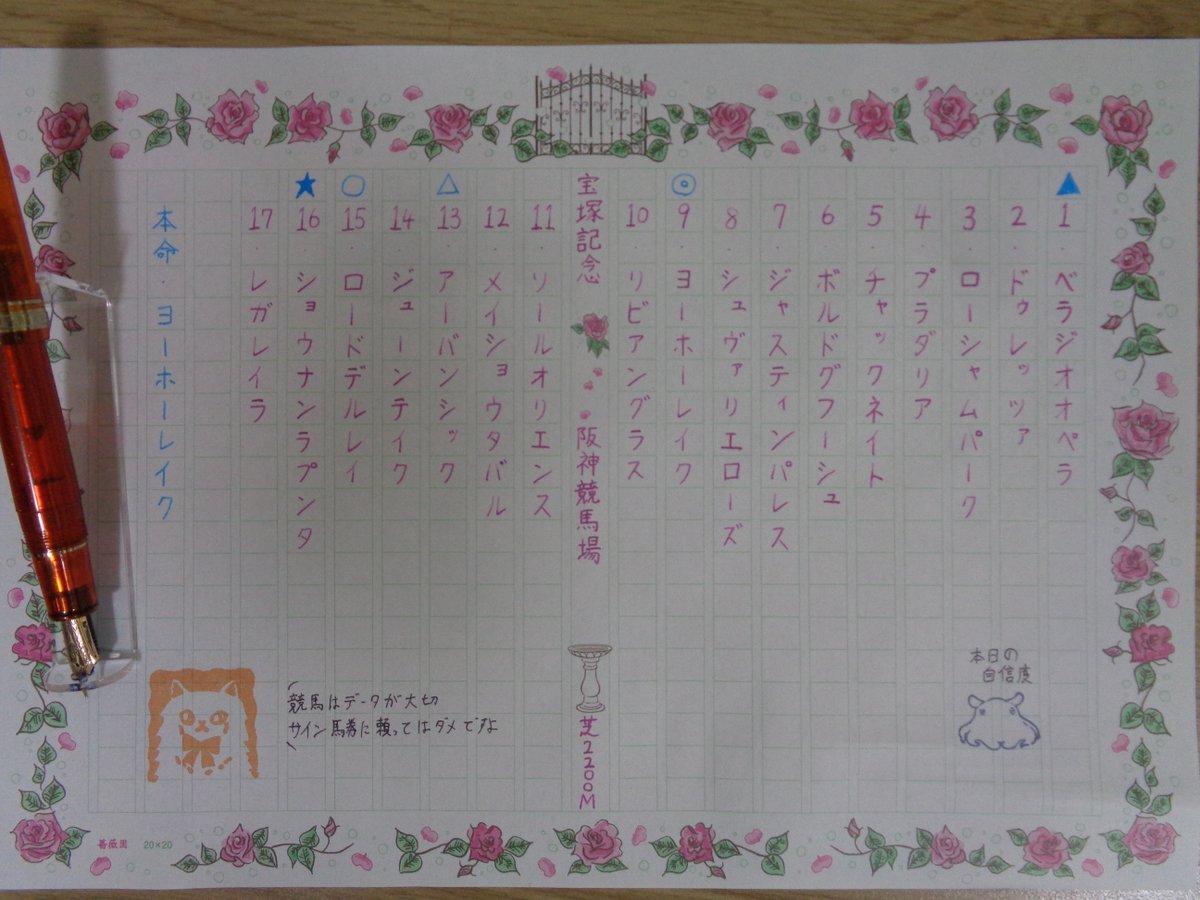 ▲ 1.ベラジオオペラ
2.ドゥレッツァ
3.ローシャムパーク
4.プラダリア
5.チャックネイト
6.ボルドグフーシュ
7.ジャスティンパレス
8.シュヴァリエローズ
◎ 9.ヨーホーレイク
10.リビアングラス
宝塚記念 阪神競馬場 芝2200M
11.ソールオリエンス
12.メイショウタバル
△ 13.アーバンシック
14.ジューンテイク
○ 15.ロードデルレイ
★ 16.ショウナンラプンタ
17.レガレイラ
本命.ヨーホーレイク
本日の
自信度
競馬はデータが大切
サイン馬券に頼ってはダメですよ
薔薇園 20×20